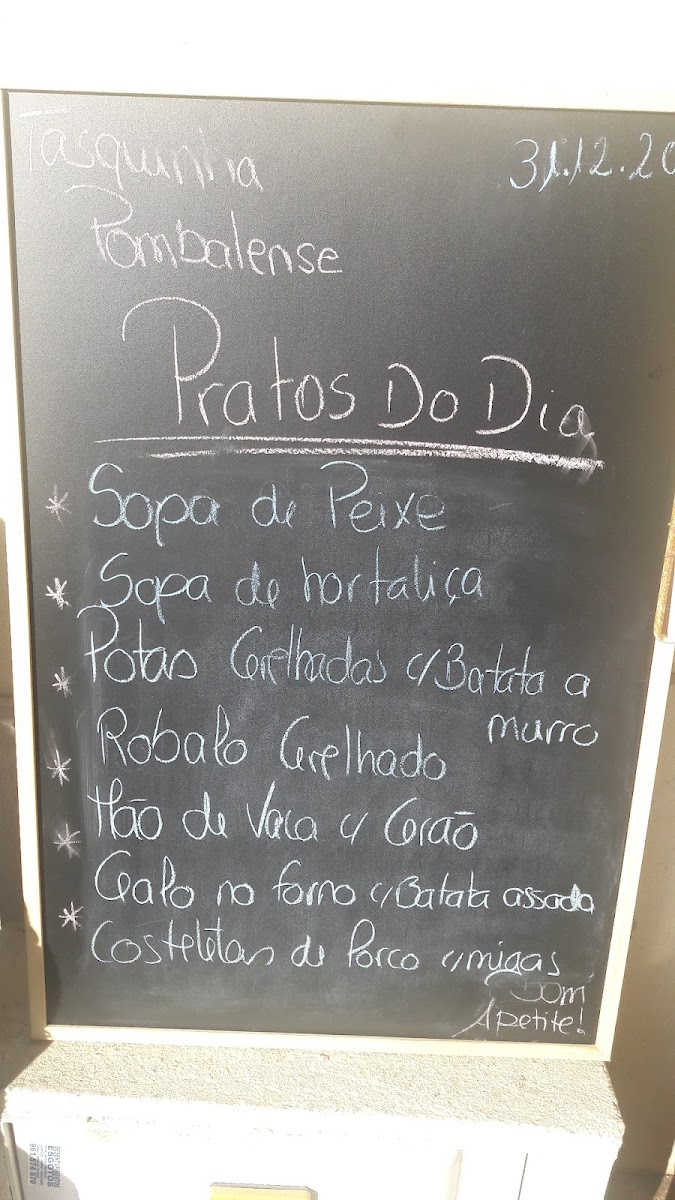 Tasquinha
31.12.20
Pombalense
Pratos Do Dia
* Sopa de Peixe
* Sopa de hortaliça
* Potas Grelhadas c/ Batata a
murro
* Robalo Grelhado
* Mão de Vaca c/ Grão
* Galo no forno c/ Batata assada
Costeletas de Porco c/ migas
Bom
Apetite!
ESGOTOS
961 674 670